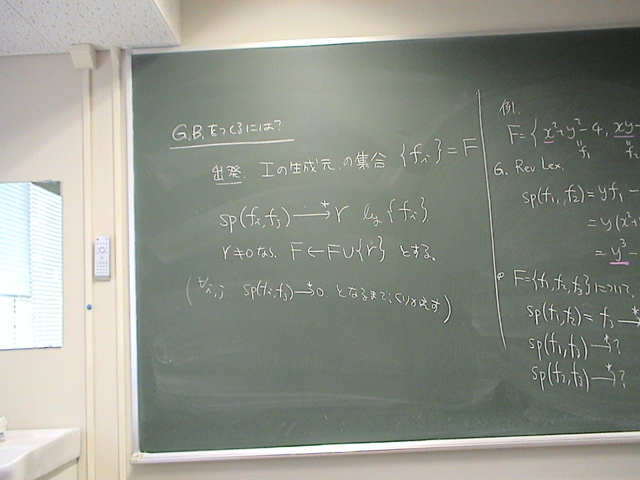 G.B.をつくるには?
出発. Iの生成元の集合 {fᵢ} = F
sp(fᵢ, fⱼ) →* r by {fᵢ}
r≠0なら, F ← F∪{r} とする.
(∀i,j sp(fᵢ,fⱼ) →* 0. となるまでくりかえす)
例.
F={x²+y²-4, xy-
f₁
G. Rev Lex.
sp(f₁, f₂) = yf₁ -
= y(x²+
= y³ -
F={f₁, f₂, f₃} について.
sp(f₁,f₂) = f₃ →*
sp(f₁,f₃) →* ?
sp(f₂,f₃) →* ?